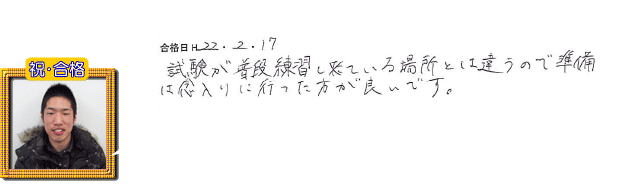 合格日 H 22.2.17
祝・合格
試験が普段練習し来ている場所とは違うので準備
は念入りに行った方が良いです。